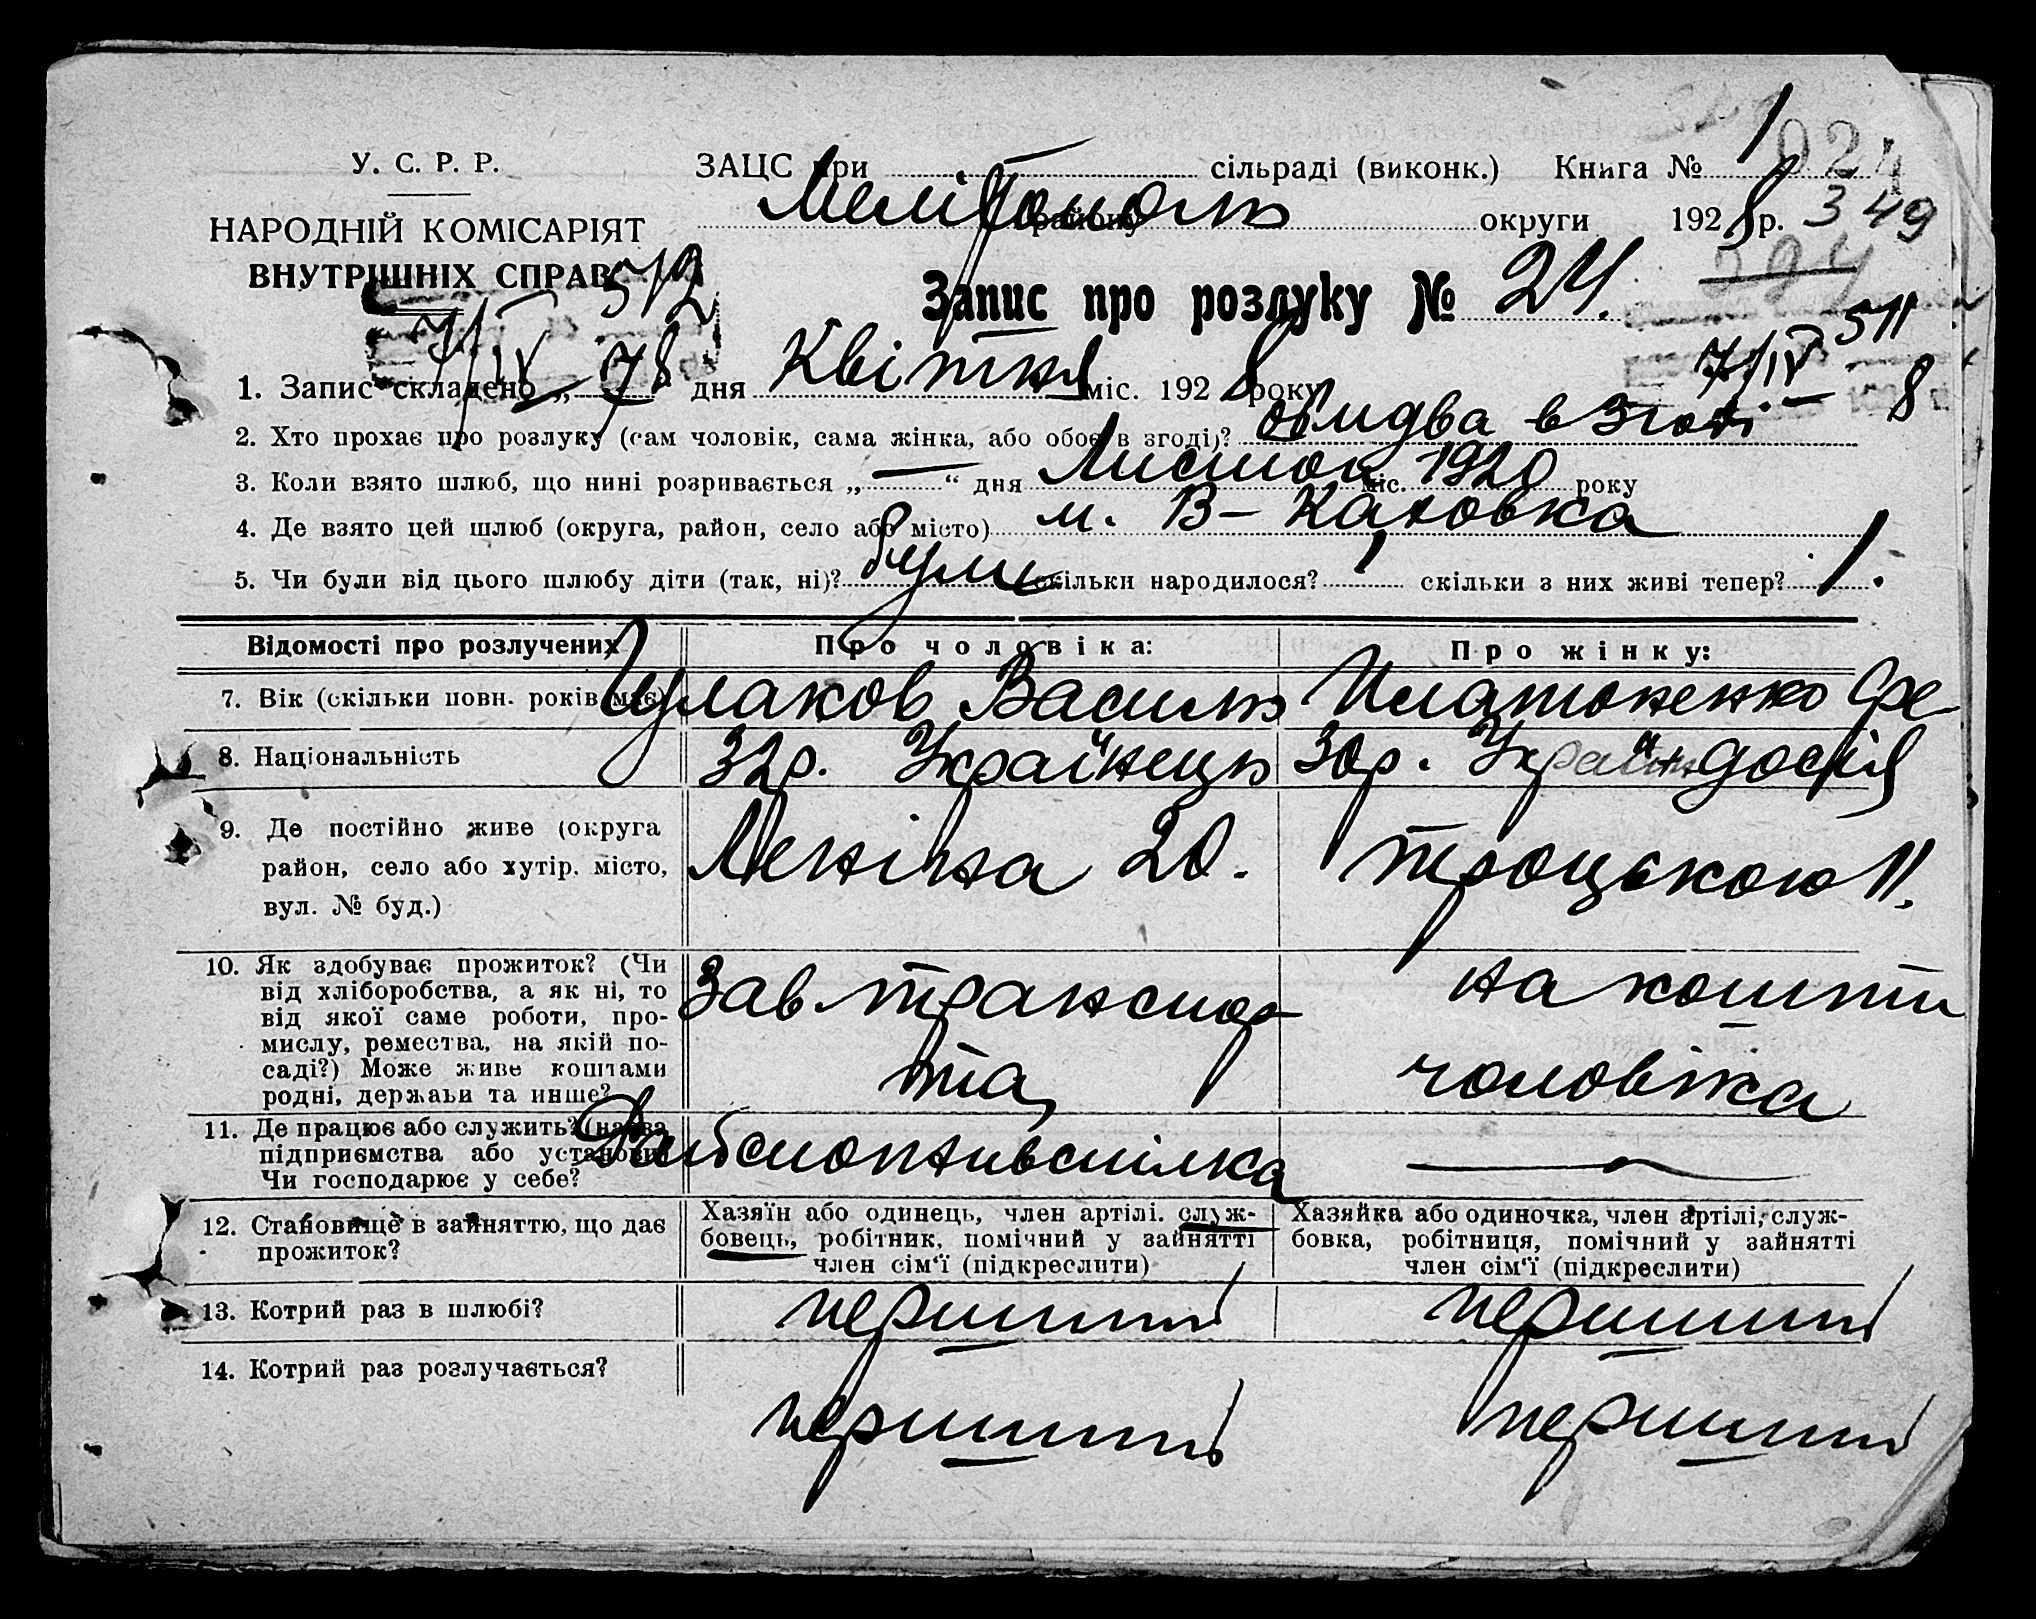 У. С. Р. Р.
НАРОДНІЙ КОМІСАРІЯТ
ВНУТРІШНІХ СПРАВ
ЗАЦС при сільраді (виконк.) Книга № 1
024
Мелітополь району округи 1928 р. 349
394
Запис про розлуку № 24.
512
7/IV
511
7/IV – 8
1. Запис складено „ 7 дня Квітня міс. 1928 року
2. Хто прохає про розлуку (сам чоловік, сама жінка, або обоє в згоді)? обидва в згоді
3. Коли взято шлюб, що нині розривається „ — “ дня Листоп. міс. 1920 року
4. Де взято цей шлюб (округа, район, село або місто) м. В – Каховка
5. Чи були від цього шлюбу діти (так, ні)? були скільки народилося? 1 скільки з них живі тепер? 1.
Відомості про розлучених
Про чоловіка:
Про жінку:
7. Вік (скільки повн. років має)
Василь
Платоненко Фе
8. Національність
32р. Українець
30р. Україн досія
9. Де постійно живе (округа
район, село або хутір, місто,
вул. № буд.)
Леніна 20.
Троцького 11.
10. Як здобуває прожиток? (Чи
від хліборобства, а як ні, то
від якої саме роботи, про-
мислу, ремества, на якій по-
саді?) Може живе коштами
родні, держави та инше?
Зав транспор-
та
на кошти
чоловіка
11. Де працює або служить? (назва
підприємства або установи)
Чи господарює у себе?
Райспоживспілка
—
12. Становище в зайняттю, що дає
прожиток?
Хазяїн або одинець, член артілі, служ-
бовець, робітник, помічний у зайнятті
член сім'ї (підкреслити)
Хазяйка або одиночка, член артілі, служ-
бовка, робітниця, помічний у зайнятті
член сім'ї (підкреслити)
13. Котрий раз в шлюбі?
перший
перший
14. Котрий раз розлучається?
перший
перший